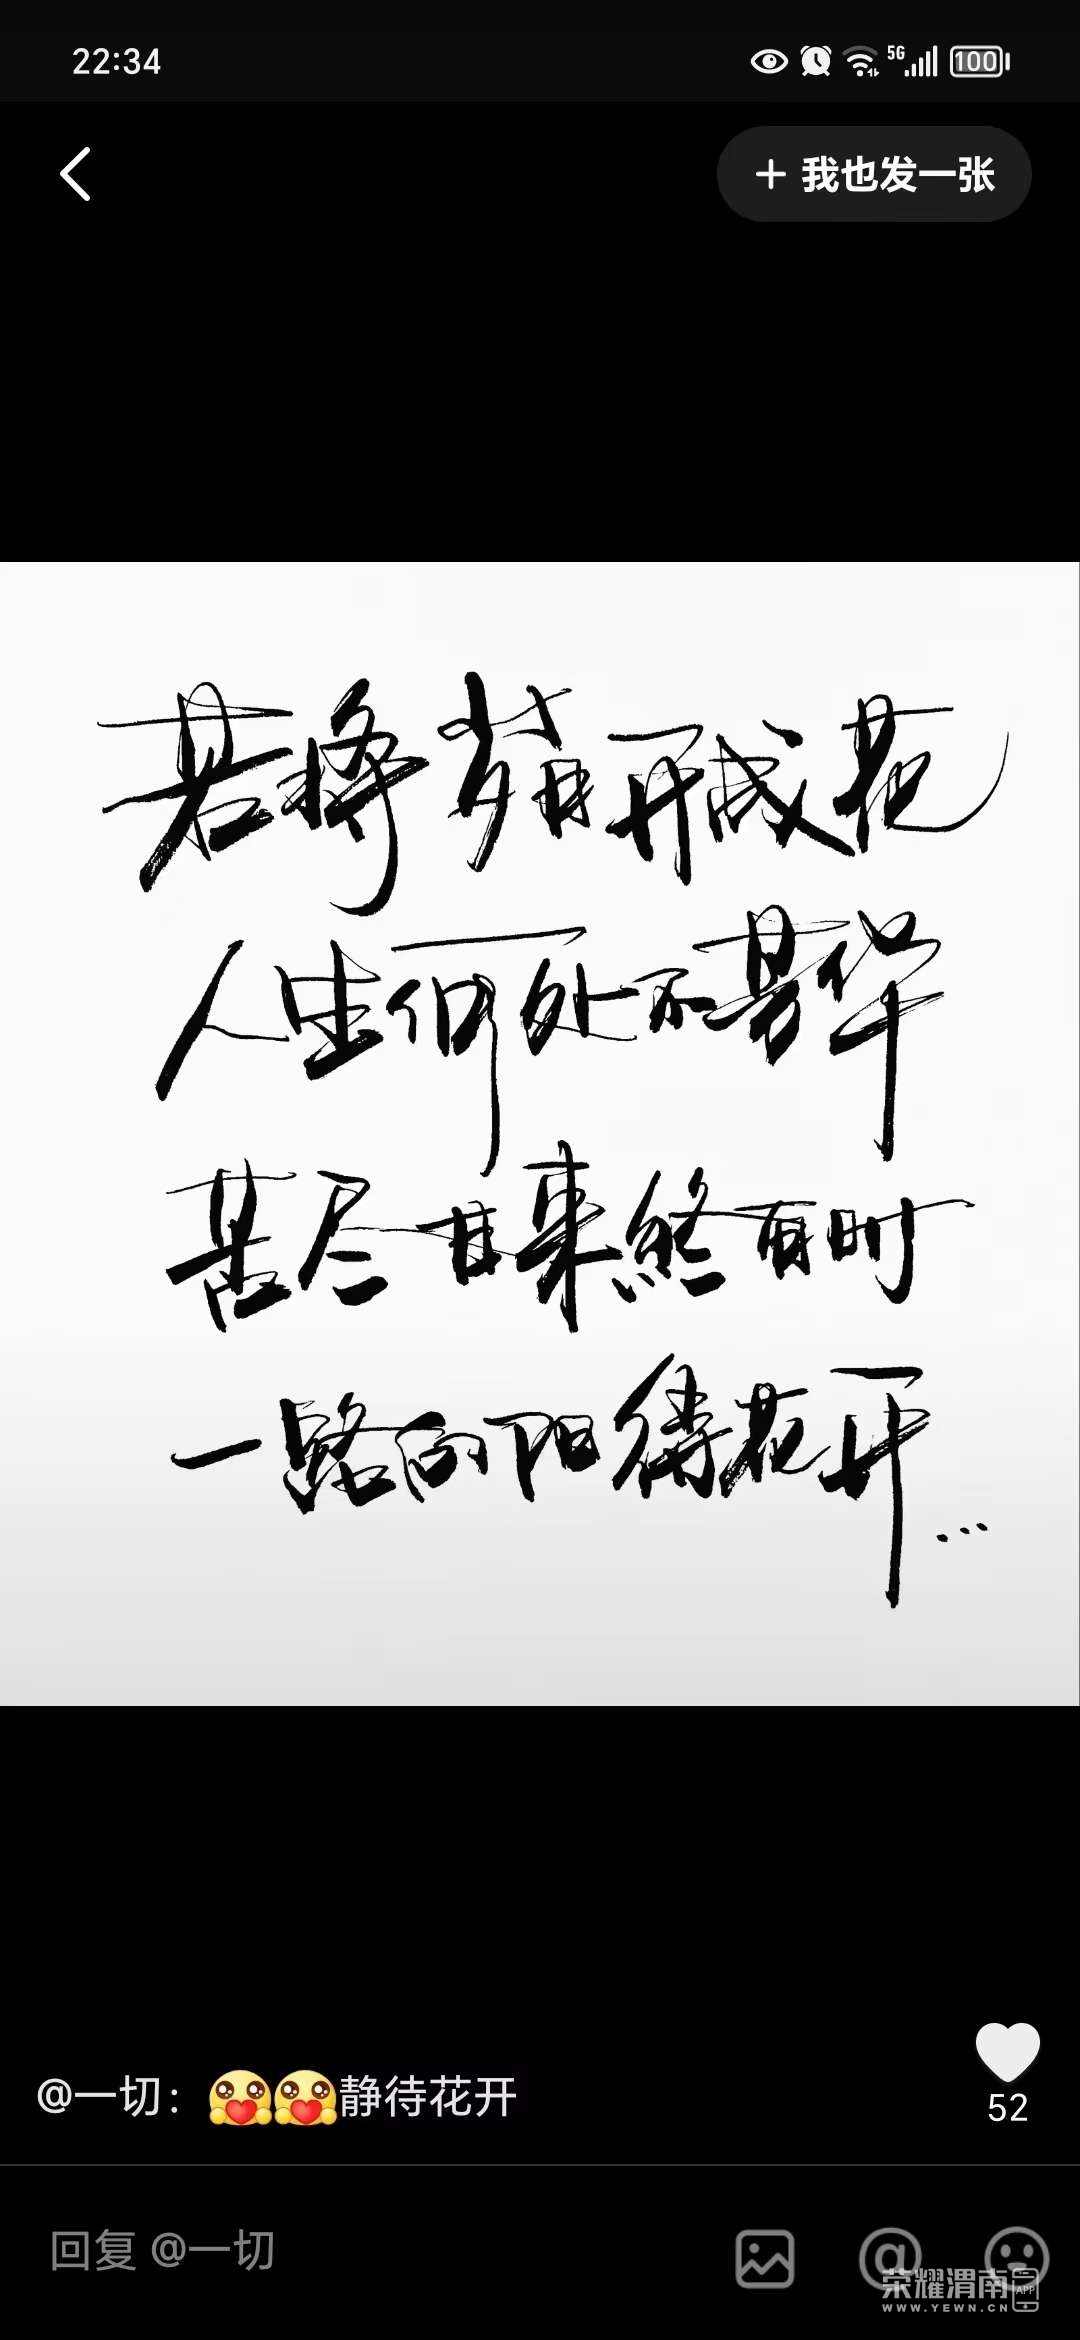 22:34
5G
100
+ 我也发一张
若将岁月开成花
人生何处不芳华
苦尽甘来终有时
一路向阳待花开...
52
@一切：静待花开
回复 @一切
荣耀渭南 APP
WWW.YEWN.CN